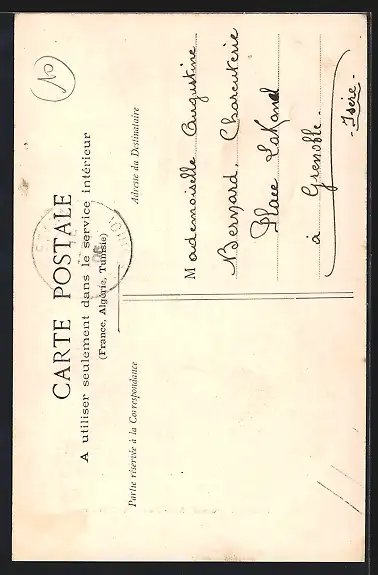 CARTE POSTALE
A utiliser seulement dans le service intérieur
(France, Algérie, Tunisie)
Partie réservée à la Correspondance
Adresse du Destinataire
Mademoiselle Augustine
Bernard, Charcuterie
Place
à Grenoble.
- Isère -